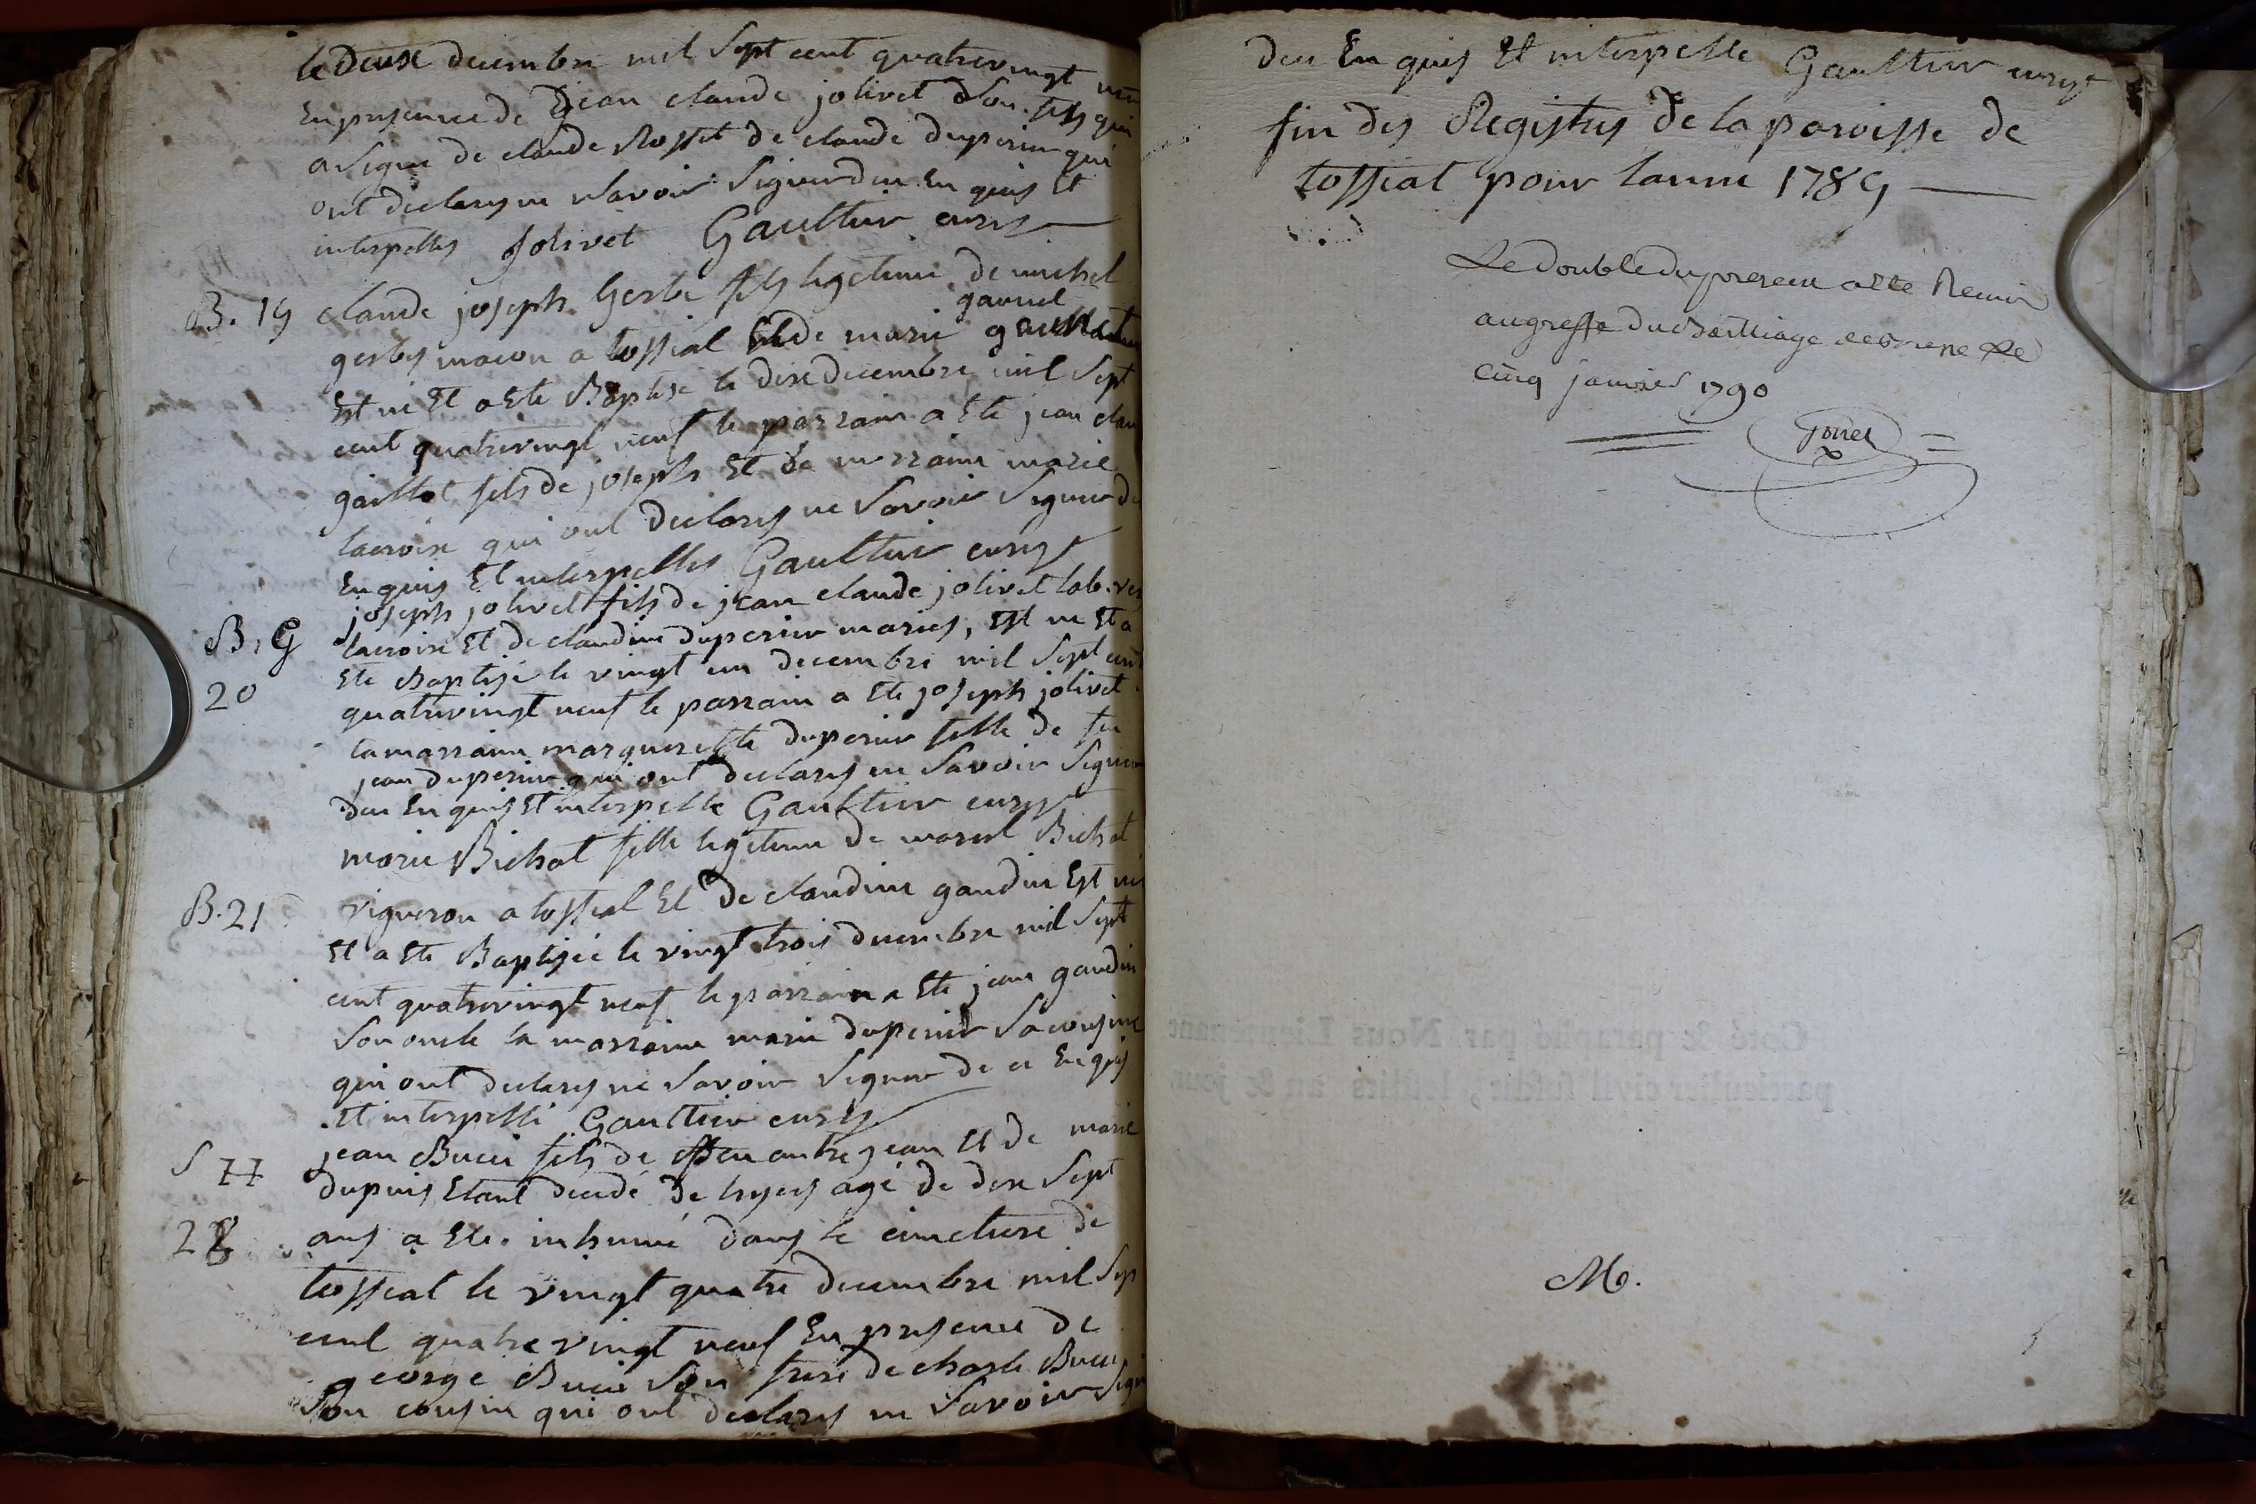 le deux decembre mil Sept cent quatrevingt neu
En presence de jean claude jolivet Son fils qui
a Signe de claude Rosset de claude duperier qui
ont declarez ne Savoir Signer deu En quis Et
interpellez Jolivet Gaultier curez
B. 19 claude joseph Gerbe fils legetime de michel
gerbes macon a tossiat Et de marie gauriel
Est ne Et a Ete Baptise le dix decembre mil Sept
cent quatrevingt neuf le parrain a Ete jean clau
gaillot fils de joseph Et la marraine marie
lacroix qui ont declarez ne Savoir Signer de
Enquis Et interpelles Gaultier curez
joseph jolivet fils de jean claude jolivet lab. rez
B. G lacroix Et de claudine duperier mariez, Est ne Et a
Ete Baptisé le vingt un decembre mil Sept cent
20 quatrevingt neuf le parrain a Ete joseph jolivet
la marraine marguerette duperier fille de feu
jean duperier qui ont declarez ne Savoir Signer
deu En quis Et interpelle Gaultier curez
marie Bichat fille legetime de Bichat
B. 21 vigneron a tossiat Et de claudine gaudin Est né
Et a Ete Baptiséé le vingt trois decembre mil Sept
cent quatrevingt neuf le parrain a Ete jean gaudin
Son oncle la marraine marie duperier Sa cousine
qui ont declarez ne Savoir Signer de ce Enquis
Et interpellé Gaultier curez
S 77 jean Buci fils de autre jean Et de marie
dupuis Etant decedé de hyer agé de dix Sept
28 ans a Ete inhumé dans le cimetiere de
tossiat le vingt quatre decembre mil Sep
cent quatre vingt neuf En presence de
george Buci Son frere de charle Buci
Son cousin qui ont declarez ne Savoir Sign
deu En quis Et interpelle Gaultier curez
fin des Registres de la paroisse de
tossiat pour lanne 1789
Le double du present a été Remis
au greffe du Bailliage de Bresse le
cinq janvier 1790
Coté & paraphé par Nous Lieutenant
particulier civil
M.